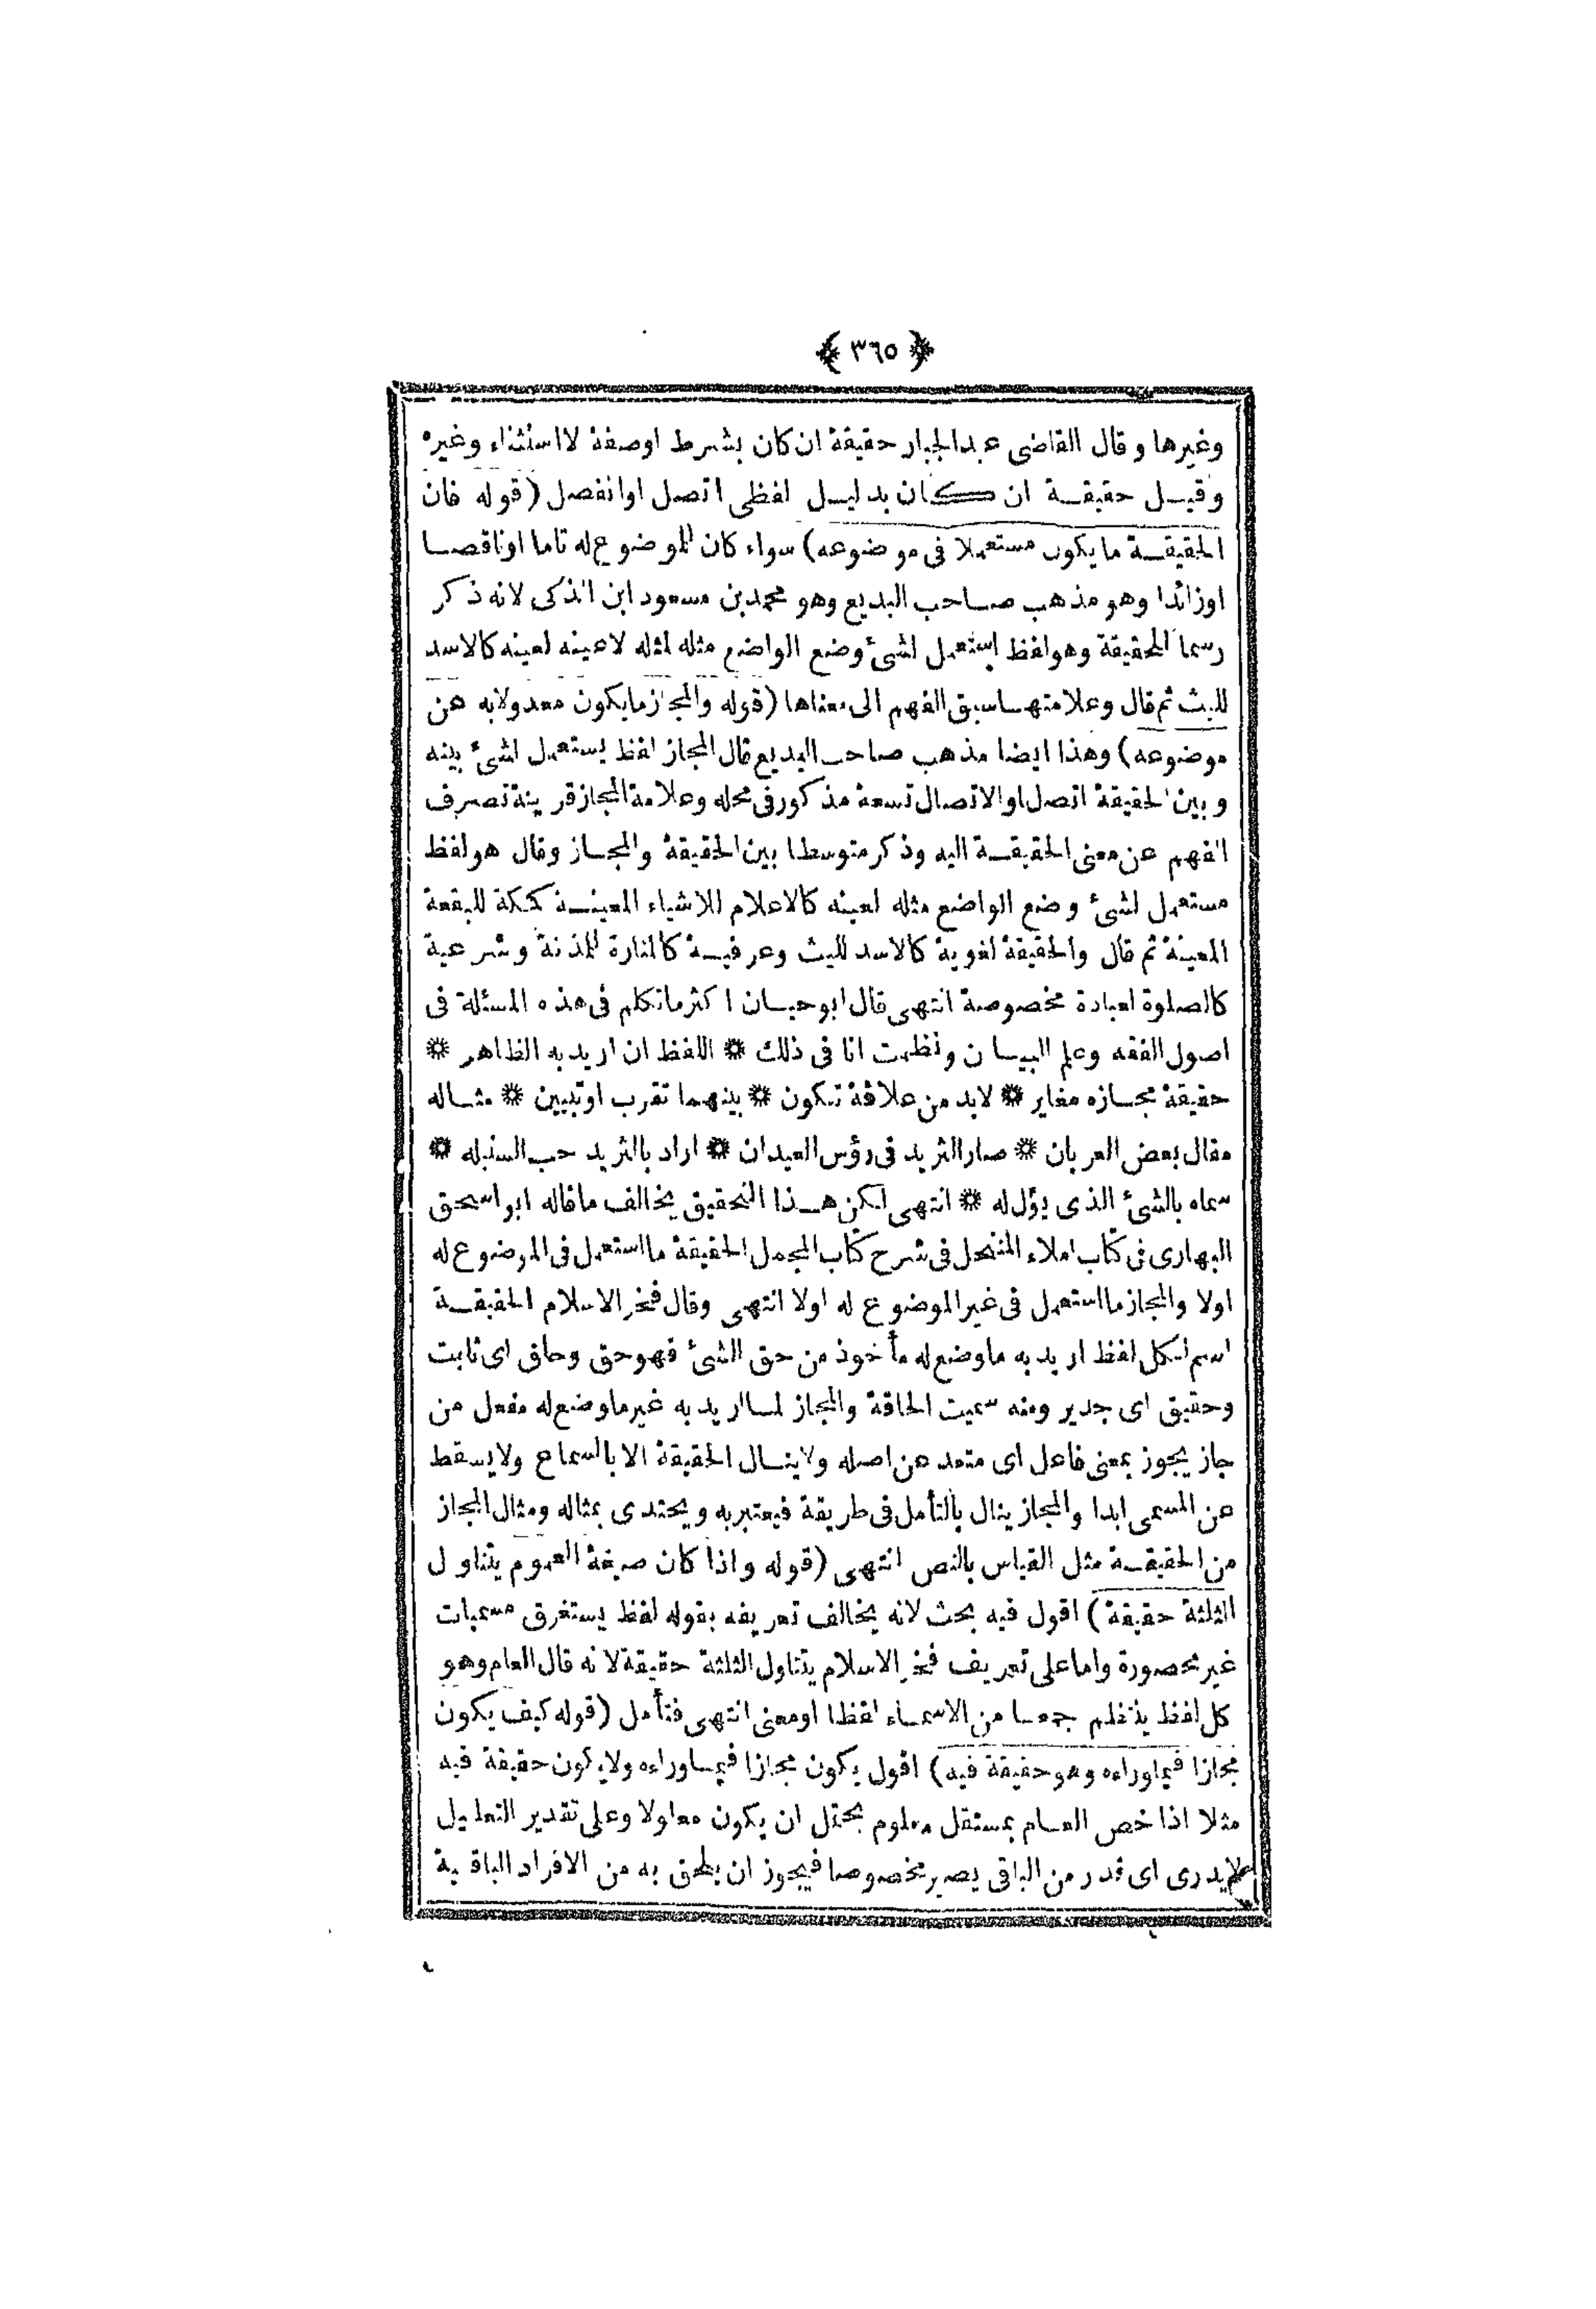 ﴿ ٣٦٥ ﴾
وغيرها وقال القاضى عبدالجبار حقيقة ان كان بشرط اوصفة لااستثناء وغيره
وقيل حقيقة ان كان بدليل لفظى اتصل اوانفصل (قوله فان
الحقيقة مايكون مستعملا فى موضوعه) سواء كان الموضوع له تاما اوناقصا
اوزائدا وهو مذهب صاحب البديع وهو محمدبن مسعود ابن الذكى لانه ذكر
رسما للحقيقة وهولفظ يستعمل لشئ وضع الواضع مثله لمثله لاعينه لعينه كالاسد
لليث ثم قال وعلامتها سبق الفهم الى معناها (قوله والمجاز مايكون معدولابه عن
موضوعه) وهذا ايضا مذهب صاحب البديع قال المجاز لفظ يستعمل لشئ بينه
وبين الحقيقة اتصل او الاتصال تسعة مذكور فى محله وعلامة المجاز قرينة تصرف
الفهم عن معنى الحقيقة اليه وذكر متوسطا بين الحقيقة والمجاز وقال هولفظ
مستعمل لشئ وضع الواضع مثله لعينه كالاعلام للاشياء المعينة كمكة للبقعة
المعينة ثم قال والحقيقة لغوية كالاسد لليث وعرفية كالمنارة للمذنة وشرعية
كالصلوة لعبادة مخصوصة انتهى قال ابوحيان اكثر ماتكلم فى هذه المسئلة فى
اصول الفقه وعلم البيان ونظمت انا فى ذلك ۞ اللفظ ان اريد به الظاهر ۞
حقيقة مجازه مغاير ۞ لابد من علاقة تكون ۞ بينهما تقرب اوتبين ۞ مثاله
مقال بعض العربان ۞ صار الثريد فى رؤس العيدان ۞ اراد بالثريد حب السنبله ۞
سماه بالشئ الذى يؤل له ۞ انتهى لكن هذا التحقيق يخالف ماقاله ابواسحق
البهارى فى كتاب املاء المنتحل فى شرح كتاب المجمل الحقيقة مااستعمل فى الموضوع له
اولا والمجاز مااستعمل فى غير الموضوع له اولا انتهى وقال فخر الاسلام الحقيقة
اسم لكل لفظ اريد به ماوضع له مأخوذ من حق الشئ فهو حق وحاق اى ثابت
وحقيق اى جدير ومنه سميت الحاقة والمجاز لما اريد به غير ماوضع له مفعل من
جاز يجوز بمعنى فاعل اى متعد عن اصله ولاينال الحقيقة الا بالسماع ولايسقط
عن المسمى ابدا والمجاز ينال بالتأمل فى طريقة فيعتبر به ويحتدى بمثاله ومثال المجاز
من الحقيقة مثل القياس بالنص انتهى (قوله واذا كان صيغة العموم يتناول
الثلثة حقيقة) اقول فيه بحث لانه يخالف تعريفه بقوله لفظ يستغرق مسميات
غير محصورة واما على تعريف فخر الاسلام يتناول الثلثة حقيقة لانه قال العام وهو
كل لفظ ينتظم جمعا من الاسماء لفظا اومعنى انتهى فتأمل (قوله كيف يكون
مجازا فيماوراءه وهو حقيقة فيه) اقول يكون مجازا فيماوراءه ولايكون حقيقة فيه
مثلا اذا خص العام بمستقل معلوم يحتمل ان يكون معلولا وعلى تقدير التعليل
لايدرى اى قدر من الباقى يصير مخصوصا فيجوز ان يلحق به من الافراد الباقية